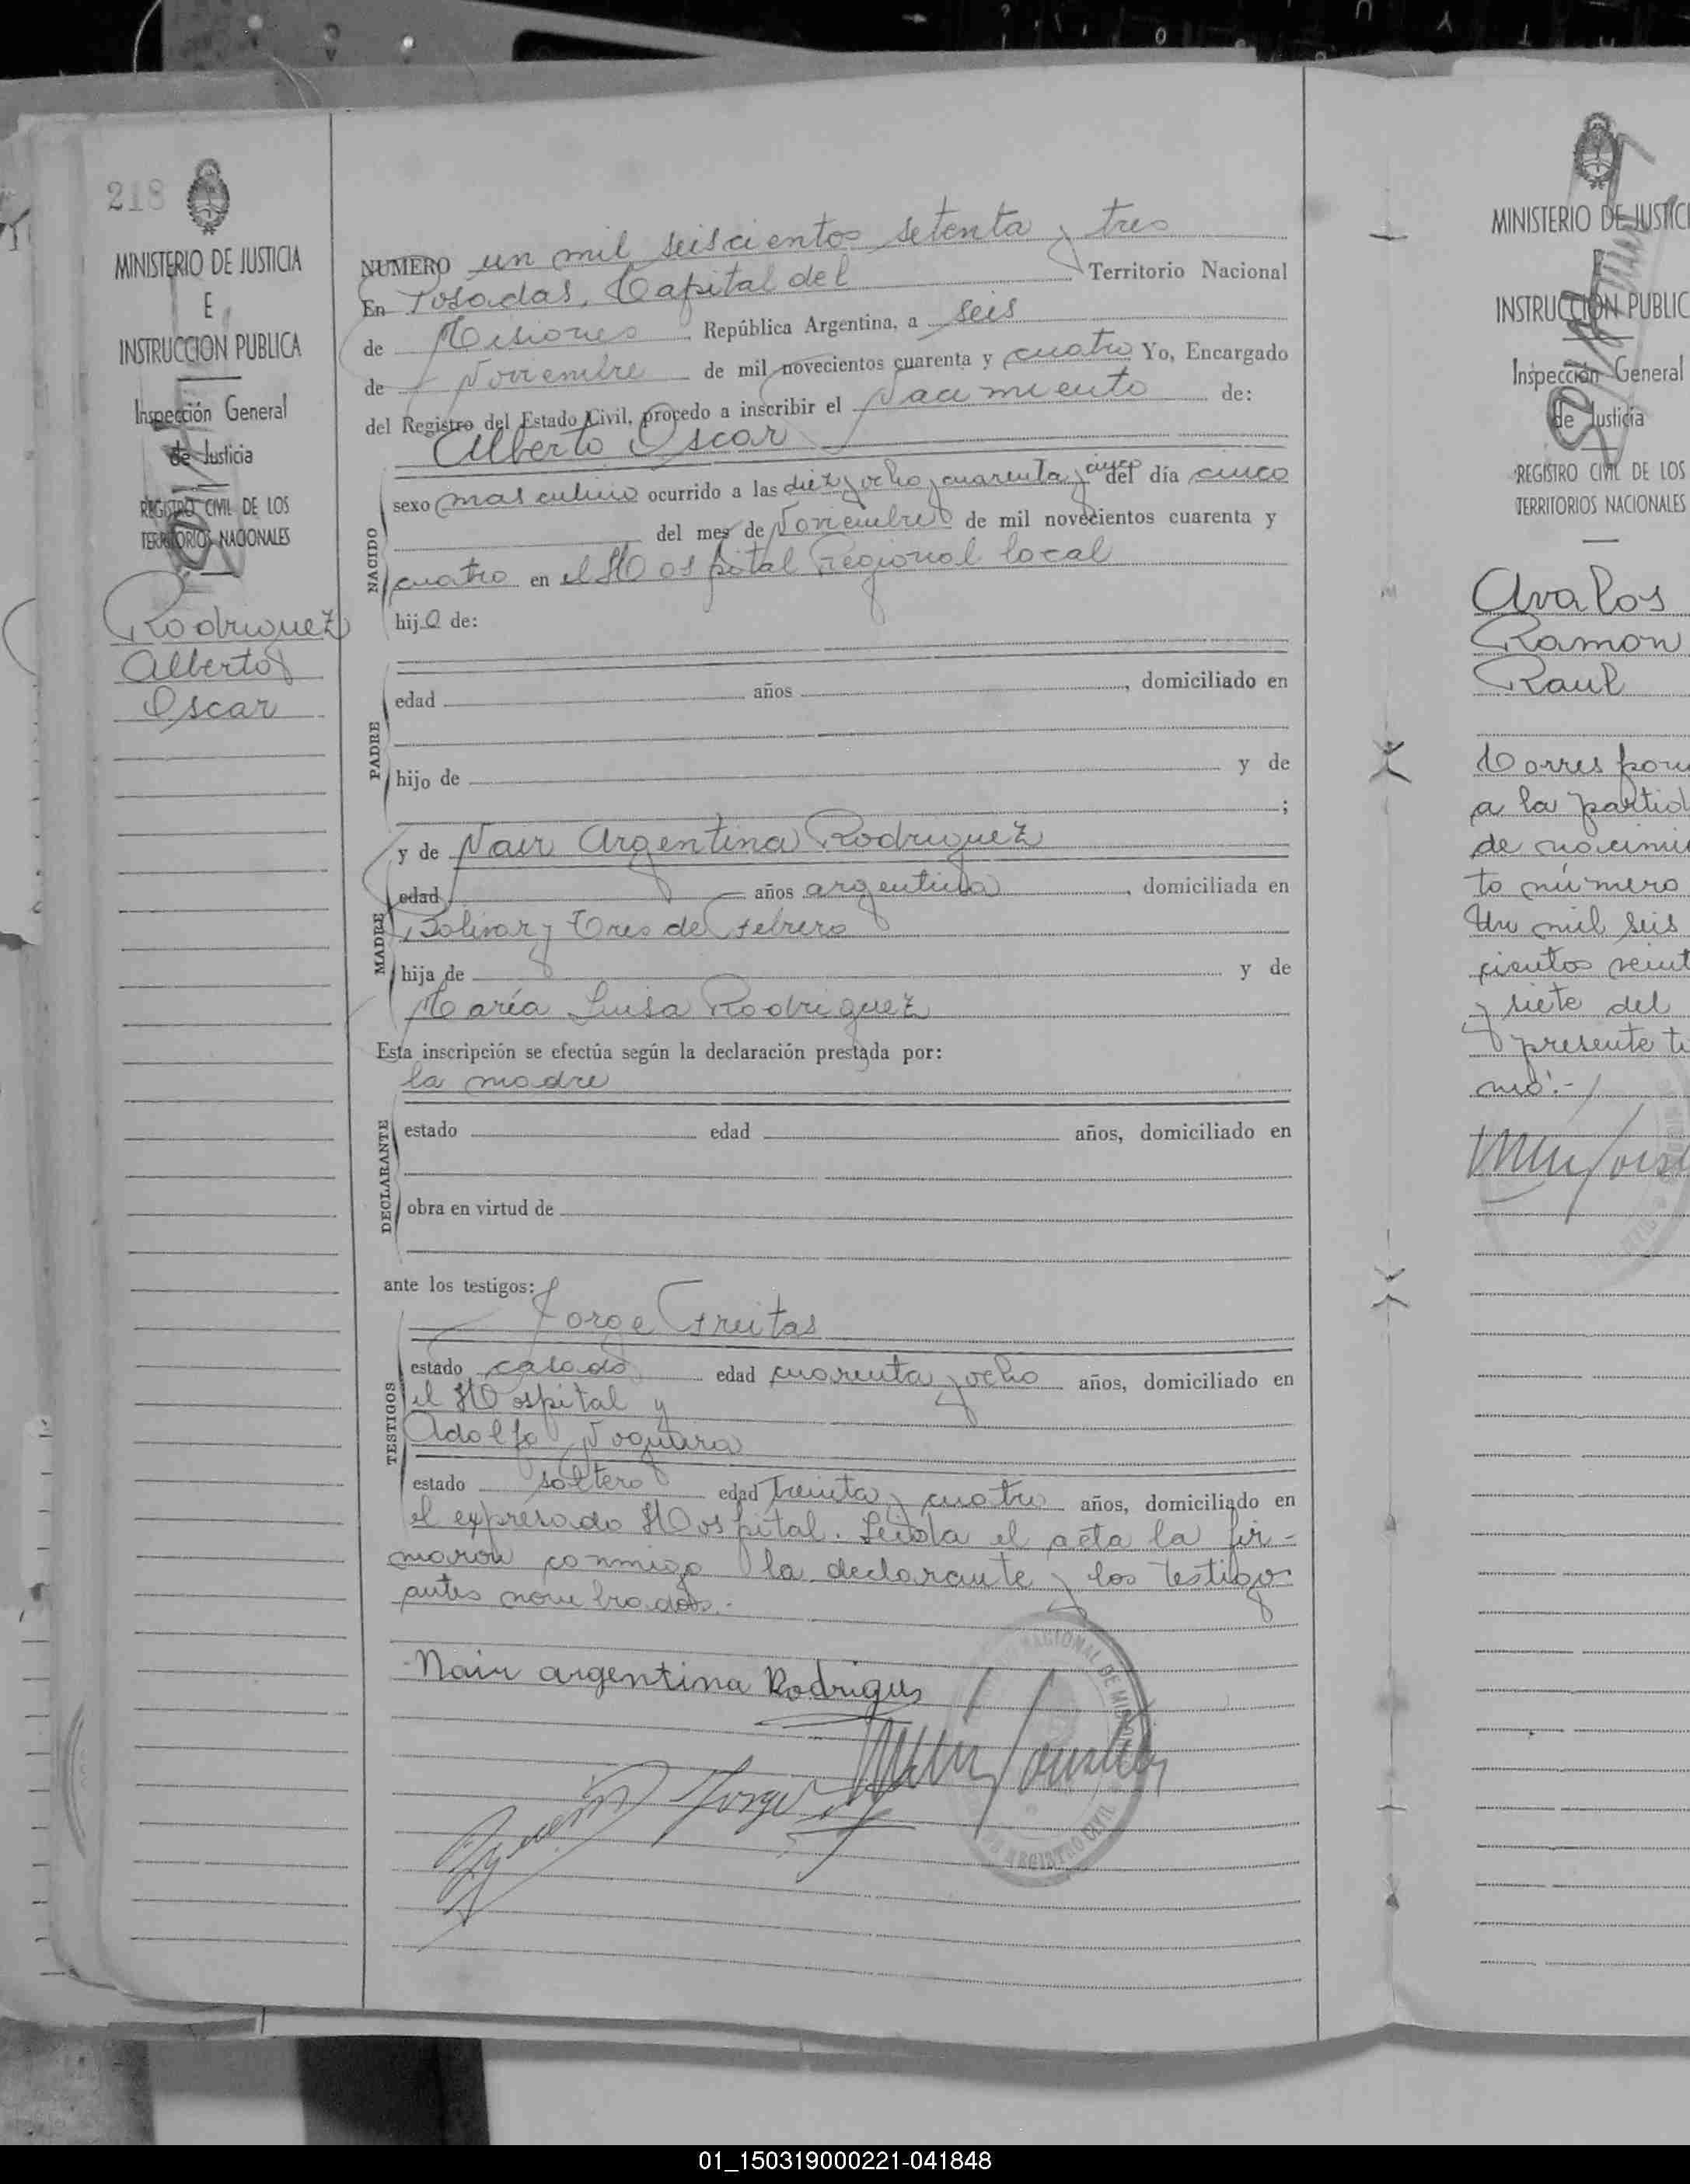 218
MINISTERIO DE JUSTICIA
E
INSTRUCCION PUBLICA
Inspección General
de Justicia
REGISTRO CIVIL DE LOS
TERRITORIOS NACIONALES
Rodriguez
Alberto
Oscar
NUMERO un mil seiscientos setenta y tres
En Posadas, Capital del Territorio Nacional
de Misiones República Argentina, a seis
de Noviembre de mil novecientos cuarenta y cuatro Yo, Encargado
del Registro del Estado Civil, procedo a inscribir el Nacimiento de:
Alberto Oscar
NACIDO
sexo masculino ocurrido a las diez y ocho y cuarenta y cinco del día cinco
del mes de Noviembre de mil novecientos cuarenta y
cuatro en el Hospital Regional local
hijo de:
PADRE
edad años , domiciliado en
hijo de y de
;
MADRE
y de Nair Argentina Rodriguez
edad años argentina , domiciliada en
Bolivar y Tres de Febrero
hija de y de
María Luisa Rodriguez
Esta inscripción se efectúa según la declaración prestada por:
la madre
DECLARANTE
estado edad años, domiciliado en
obra en virtud de
ante los testigos:
Jorge Freitas
TESTIGOS
estado casado edad cuarenta y ocho años, domiciliado en
el Hospital y
Adolfo Noguera
estado soltero edad treinta y cuatro años, domiciliado en
el expresado Hospital. Leida el acta la fir-
maron conmigo la declarante y los testigos
antes nombrados.-
Nair argentina Rodrigues
NACIONAL DE MISIONES
REGISTRO CIVIL
MINISTERIO DE JUSTICI
E
INSTRUCCION PUBLIC
Inspección General
de Justicia
REGISTRO CIVIL DE LOS
TERRITORIOS NACIONALES
Avalos
Ramon
Raul
Corres pon
a la partid
de nacimie
to número
Un mil seis
cientos veint
y siete del
presente to
mo.-
01_150319000221-041848